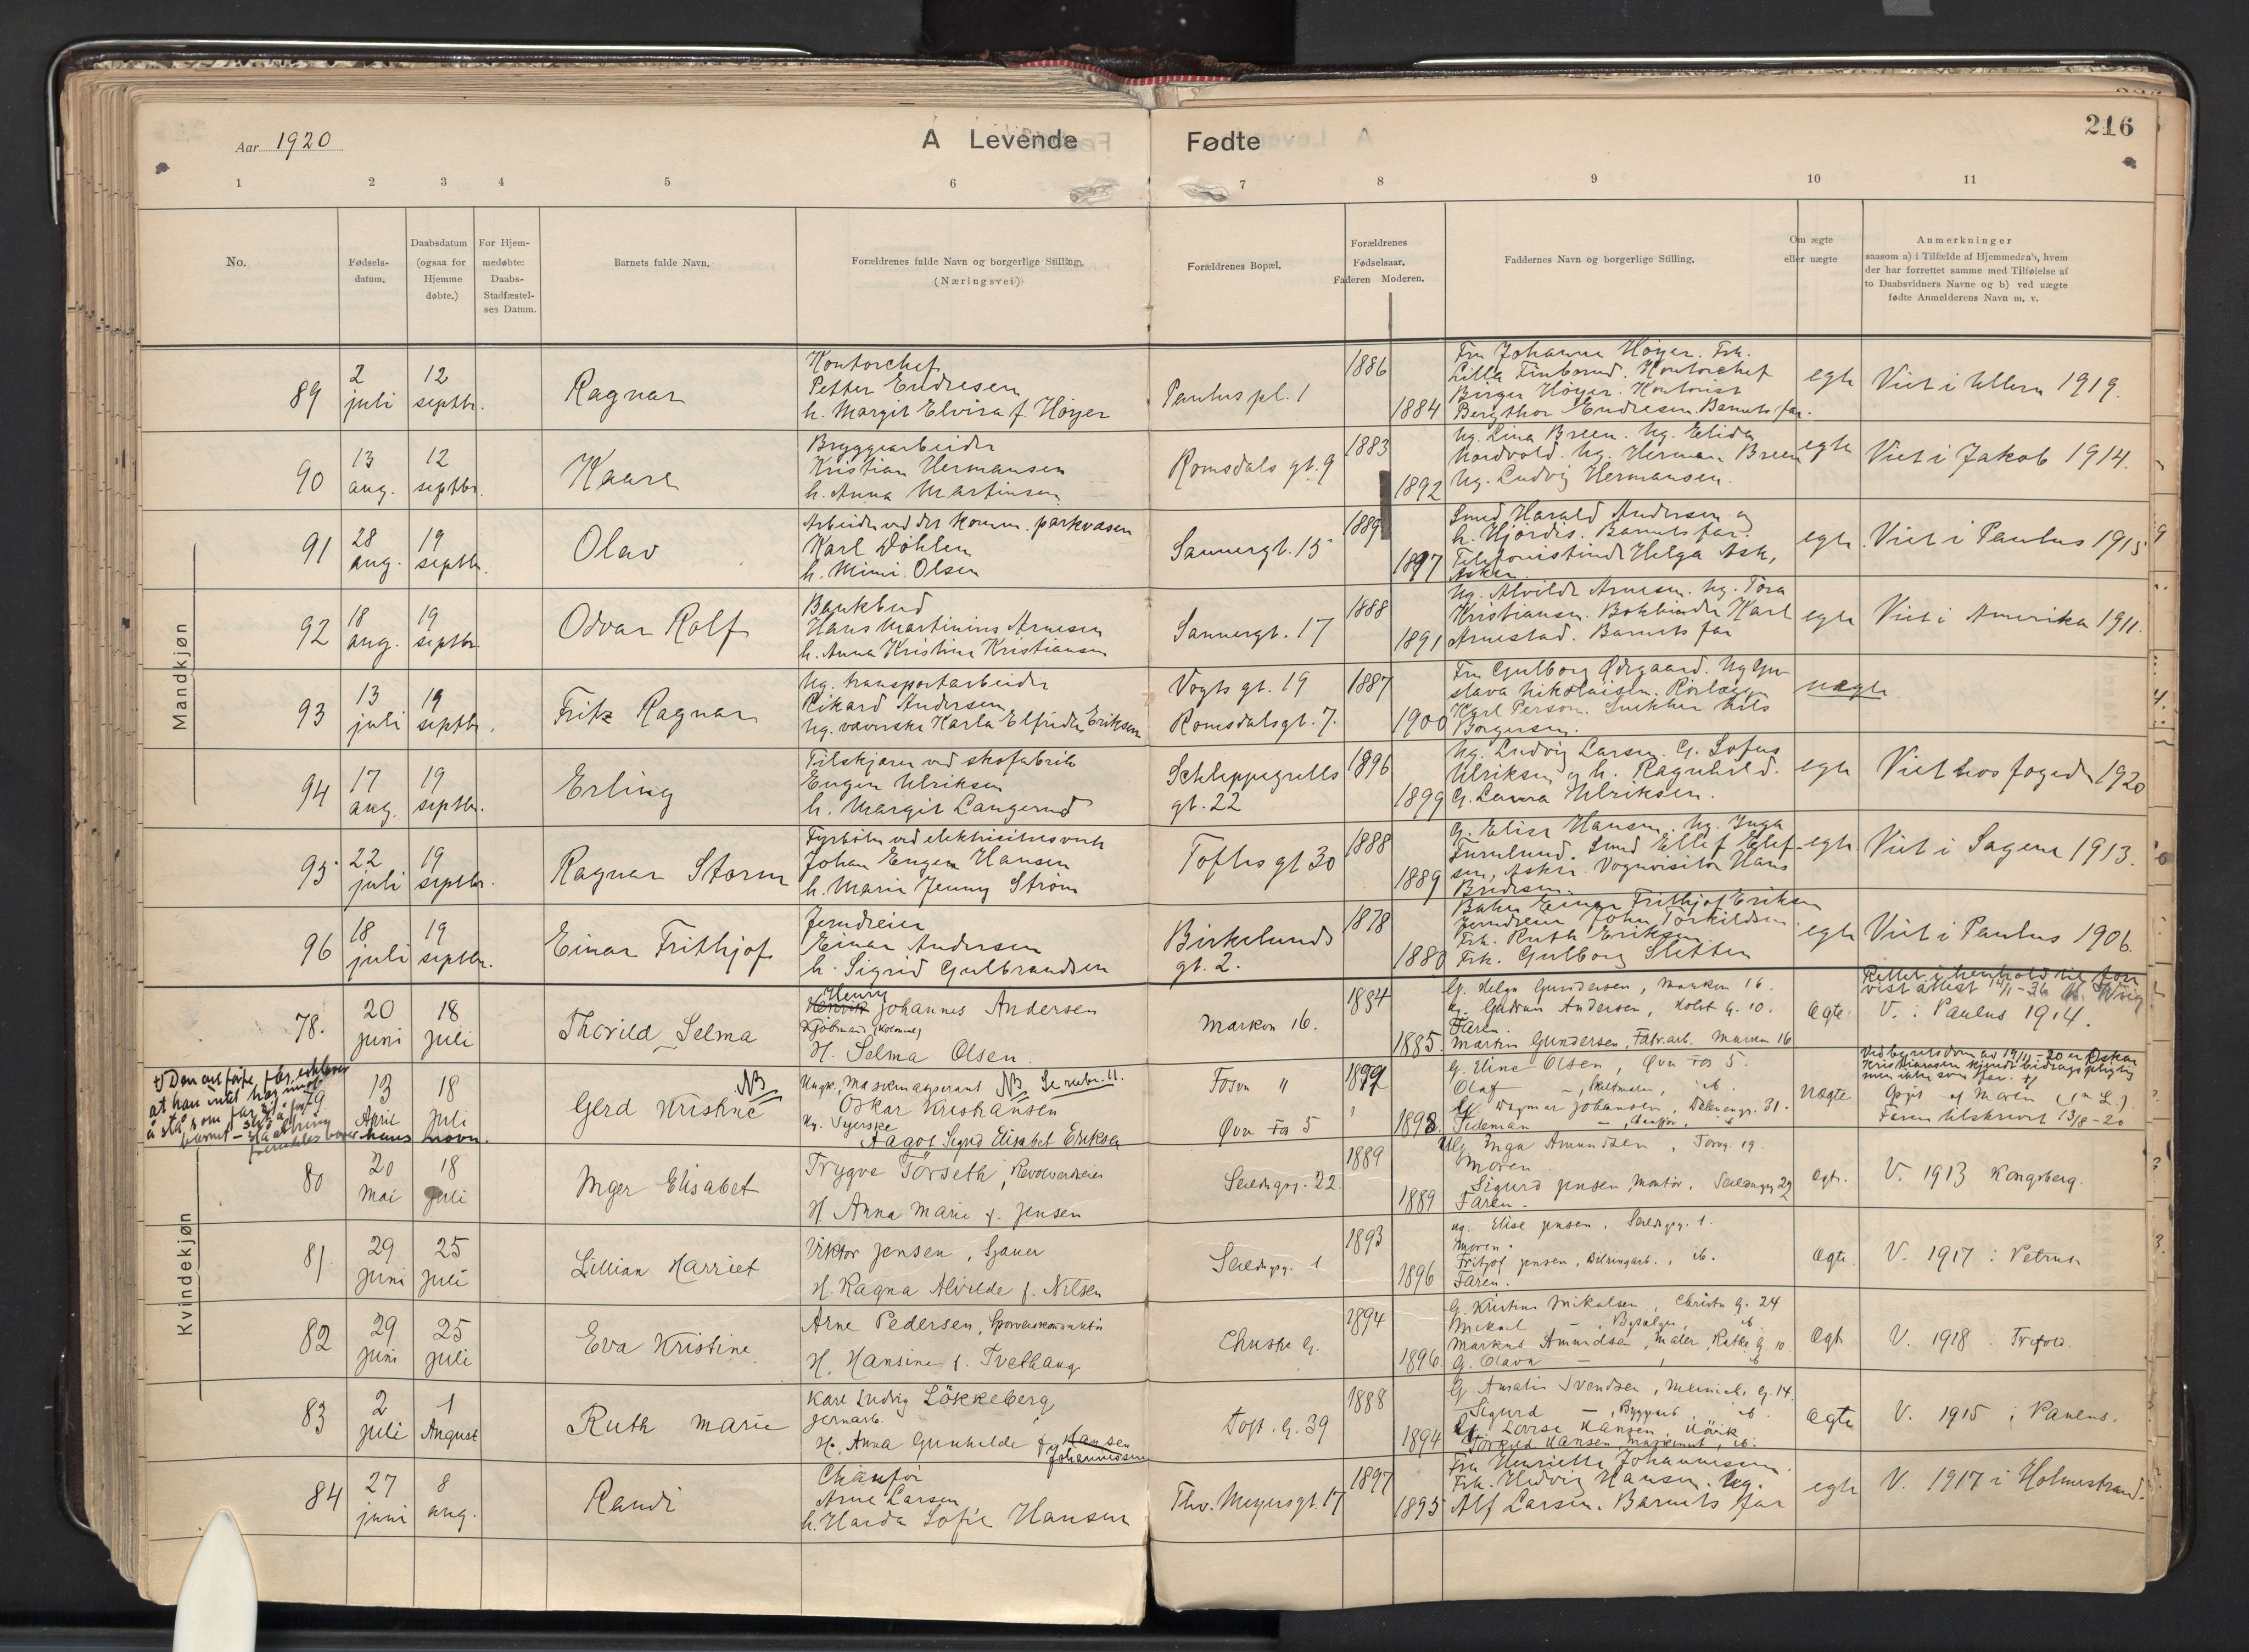 216
Aar 1920
A Levende Fødte
1 2 3 4 5 6 7 8 9 10 11
No.
Fødsels-
datum.
Daabsdatum
(ogsaa for
Hjemme
døbte.)
For Hjem-
medøbte:
Daabs-
Stadfæstel-
ses Datum.
Barnets fulde Navn.
Forældrenes fulde Navn og borgerlige Stilling.
(Næringsvei)
Forældrenes Bopæl.
Forældrenes
Fødselsaar.
Faderen Moderen.
Faddernes Navn og borgerlige Stilling.
Om ægte
eller uægte
Anmerkninger
saasom a) i Tilfælde af Hjemmedaab, hvem
der har forrettet samme med Tilføielse af
to Daabsvidners Navne og b) ved uægte
fødte Anmelderens Navn m. v.
Mandkjøn
89
2
juli
12
septbr.
Ragnar
Kontorchef
Petter Endresen
h. Margit Elvira f. Höyer
Paulus pl. 1
1886
1884
Fru Johanne Höyer. Frk.
Lilla Finbrud. Kontorchef
Birger Höyer. Kontorist
Bergthor Endresen. Barnets far.
egte
Viet i Ullern 1919.
90
13
aug.
12
septbr.
Kaare
Bryggearbeider
Kristian Hermansen
h. Anna Martinsen
Romsdals gt. 9
1883
1892
Ug. Lina Breen. Ug. Elida
Nordvold. Ug. Herman Breen
Ug. Ludvig Hermansen.
egte
Viet i Jakob 1914.
91
28
aug.
19
septbr.
Olav
Arbeider ved det komm. parkvæsen
Karl Döhlen
h. Mimi Olsen
Sannergt. 15
1889
1897
Smed Harald Andersen og
h. Hjördis. Barnets far.
Telefonistinde Helga Ask,
Asker.
egte
Viet i Paulus 1915
92
18
aug.
19
septbr.
Odvar Rolf
Bankbud
Hans Martinius Arnesen
h. Anna Kristine Kristiansen
Sannergt. 17
1888
1891
Ug. Alvilde Arnesen. Ug. Tora
Kristiansen. Bokbinder Karl
Arnestad. Barnets far
egte
Viet i Amerika 1911.
93
13
juli
19
septbr.
Fritz Ragnar
Ug. transportarbeider
Rikard Andersen
Ug. væverske Karla Elfrida Eriksen
Vogts gt. 19
Romsdalsgt. 7.
1887
1900
Fru Gulborg Ødegaard. Ug Gu-
stava Nikolaisen. Rörlægger
Karl Person. Snekker Nils
Borgersen.
uegte
94
17
aug.
19
septbr.
Erling
Tilskjærer ved skofabrik
Eugen Ulriksen
h. Margit Langerud
Schleppegrells
gt. 22
1896
1899
Ug. Ludvig Larsen. G. Sofus
Ulriksen og h. Ragnhild.
G. Laura Ulriksen.
egte
Viet hos foged 1920
95
22
juli
19
septbr.
Ragnar Storm
Fyrböter ved elektrisitetsverk
Johan Eugen Hansen
h. Marie Jenny Ström
Toftes gt 30
1888
1889
G. Elise Hansen. Ug. Inga
Furulund. Smed Ellef Elef-
sen, Asker. Vognvisitör Hans
Bredesen.
egte
Viet i Sagene 1913.
96
18
juli
19
septbr.
Einar Frithjof
Jerndreier
Einar Andersen
h. Sigrid Gulbrandsen
Birkelunds
gt. 2.
1878
1880
Einar Frithjof Eriksen
Jerndreier John Torkildsen
Frk. Ruth Eriksen
Frk. Gulborg Sletten
egte
Viet i Paulus 1906.
Kvindekjøn
78.
20
juni
18
juli
Thorild Selma
Henry
Henrik Johannes Andersen
Kjöbmand (Kolonial)
H. Selma Olsen.
Markvn 16.
1884
1885.
G. Helga Gundersen, Markvn 16.
Ug. Gudrun Andersen, Holst G. 10.
Faren.
Martin Gundersen, Fabr.arb. Markvn 16
ægte.
Rettet i henhold til fore
vist attest 14/1-36
V. i Paulus 1914.
79
13
April
18
Juli
t) Den anførte far erklærer
at han intet har imot
å stå som far til
barnet
hans navn.
Gerd Kristine
NB
Ungk. Maskinaspirant NB Se rubr. 11.
Oskar Kristiansen
Ug. Syerske
Aagot Sigrid Elisabet Eriksen
Fosvn "
Øvre Fos 5
1899
1898.
G. Eline Olsen, Øvre Fos 5.
Olaf — , ib.
Ug. Dagmar Johansen, Dælenengt. 31.
Tideman — , Chauffør, ib
uægte
Ved byretsdom av 19/11-20 er Oskar
Kristiansen kjendt bidragspligtig
men ikke som far. t)
Opgit af Moren
Faren tilskrevet 13/8-20
80
20
Mai
18
Juli
Inger Elisabet
Trygve Törseth, Revolverdreier
H. Anna Marie f. Jensen
Seildugsg. 22.
1889
1889
Ug Inga Amundsen, Torvg. 19.
Moren
Sigurd Jensen, Montør, Seildugsg 22
Faren.
ægte.
V. 1913 Kongsberg.
81
29
Juni
25
Juli
Lillian Harriet
Viktor Jensen, Sjauer
H. Ragna Alvilde f. Nilsen
Seildugsg. 1
1893
1896
ug. Elise Jensen, Seildugsg. 1.
Moren.
Fritjof Jensen, Belysningsarb., ib.
Faren.
ægte.
V. 1917 i Petrus
82
29
Juni
25
Juli
Eva Kristine
Arne Pedersen, Sporveiskonduktör
H. Hansine f. Tvethaug
Christie G.
1894
1896
G. Kristine Mikalsen, Christie G. 24
Mikael — , ib.
Markus Amundsen, Maler, Rathe G. 10.
G. Olava — , ib
ægte
V. 1918 Trefold.
83
2
Juli
1
August
Ruth Marie
Karl Ludvig Lökkeberg
Jernarb.
H. Anna Gunhilde f. Hansen
Johannessen
Toft. G. 39
1888
1894
G. Amalie Svendsen, G. 14.
Sigurd — , Byggearb., ib.
G. Lovise Hansen, Hövik
Torkild Hansen, Maskinist, ib.
ægte
V. 1915 i Paulus.
84
27
juni
8
aug.
Randi
Chauför
Arne Larsen
h. Harda Sofie Hansen
Thv. Meyersgt. 17
1897
1895
Fru Henriette Johannessen.
Frk. Hedvig Hansen. Ug.
Alf Larsen. Barnets far
egte
V. 1917 i Holmestrand.